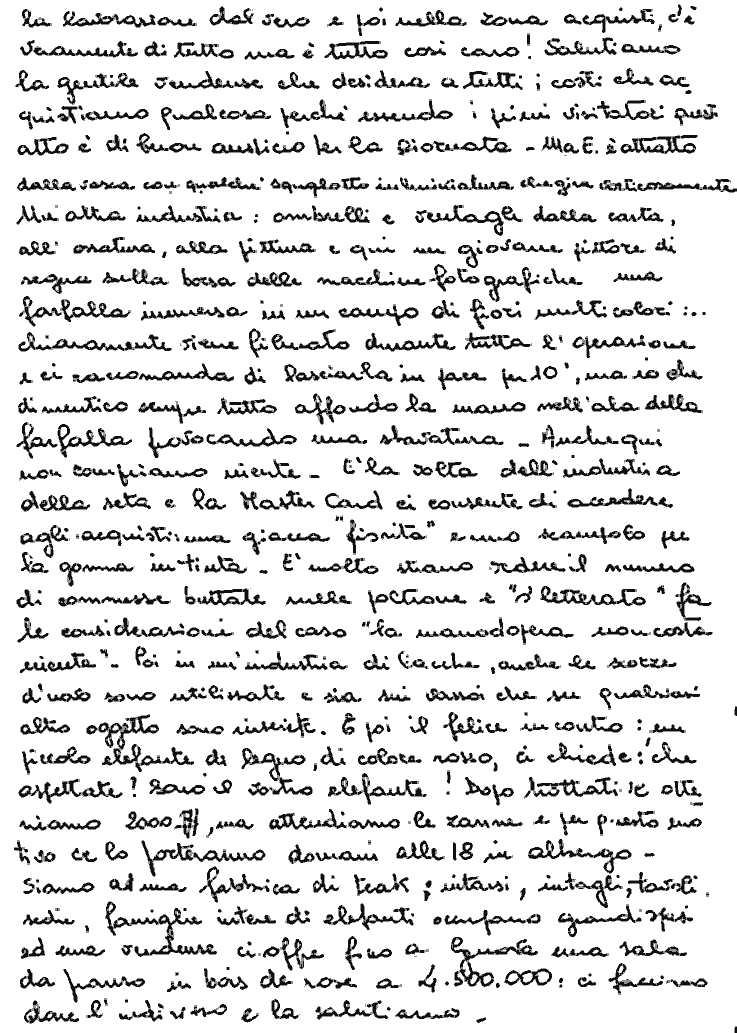 la lavorazione dal vero e poi nella zona acquisti, c'è
veramente di tutto ma è tutto così caro! Salutiamo
la gentile vendense che desidera a tutti i costi che ac
quistiamo qualcosa perché essendo i primi visitatori quest'
atto è di buon auspicio per la giornata - Ma E. è attratto
dalla vasca con qualche squalotto in miniatura che gira vorticosamente
Un'altra industria: ombrelli e ventagli dalla carta,
all'ossatura, alla pittura e qui un giovane pittore di
segna sulla borsa delle macchine fotografiche una
farfalla immersa in un campo di fiori multicolori:..
chiaramente viene filmato durante tutta l'operazione
e ci raccomanda di lasciarla in pace per 10', ma io che
dimentico sempre tutto affondo la mano nell'ala della
farfalla provocando una sbavatura - Anche qui
non compriamo niente - E' la volta dell'industria
della seta e la Master Card ci consente di accedere
agli acquisti: una giacca "fiorita" e uno scampolo per
la gonna in tinta - E' molto strano vedere il numero
di commesse buttate sulle poltrone e "il letterato" fa
le considerazioni del caso "la manodopera non costa
niente" - Poi in un'industria di lacche, anche le scorze
d'uovo sono utilizzate e sia sui vassoi che su qualsiasi
altro oggetto sono inserite. E poi il felice incontro: un
piccolo elefante di legno, di colore rosso, ci chiede: "che
aspettate? Sarò il vostro elefante! Dopo trattative otte
niamo 2000 , ma attendiamo le zanne e per questo mo
tivo ce lo porteranno domani alle 18 in albergo -
Siamo ad una fabbrica di teak; intarsi, intagli, tavoli
sedie, famiglie intere di elefanti occupano grandi spazi
ed una vendense ci offre fino a una sala
da pranzo in bois de rose a 4.500.000: ci facciamo
dare l'indirizzo e la salutiamo -